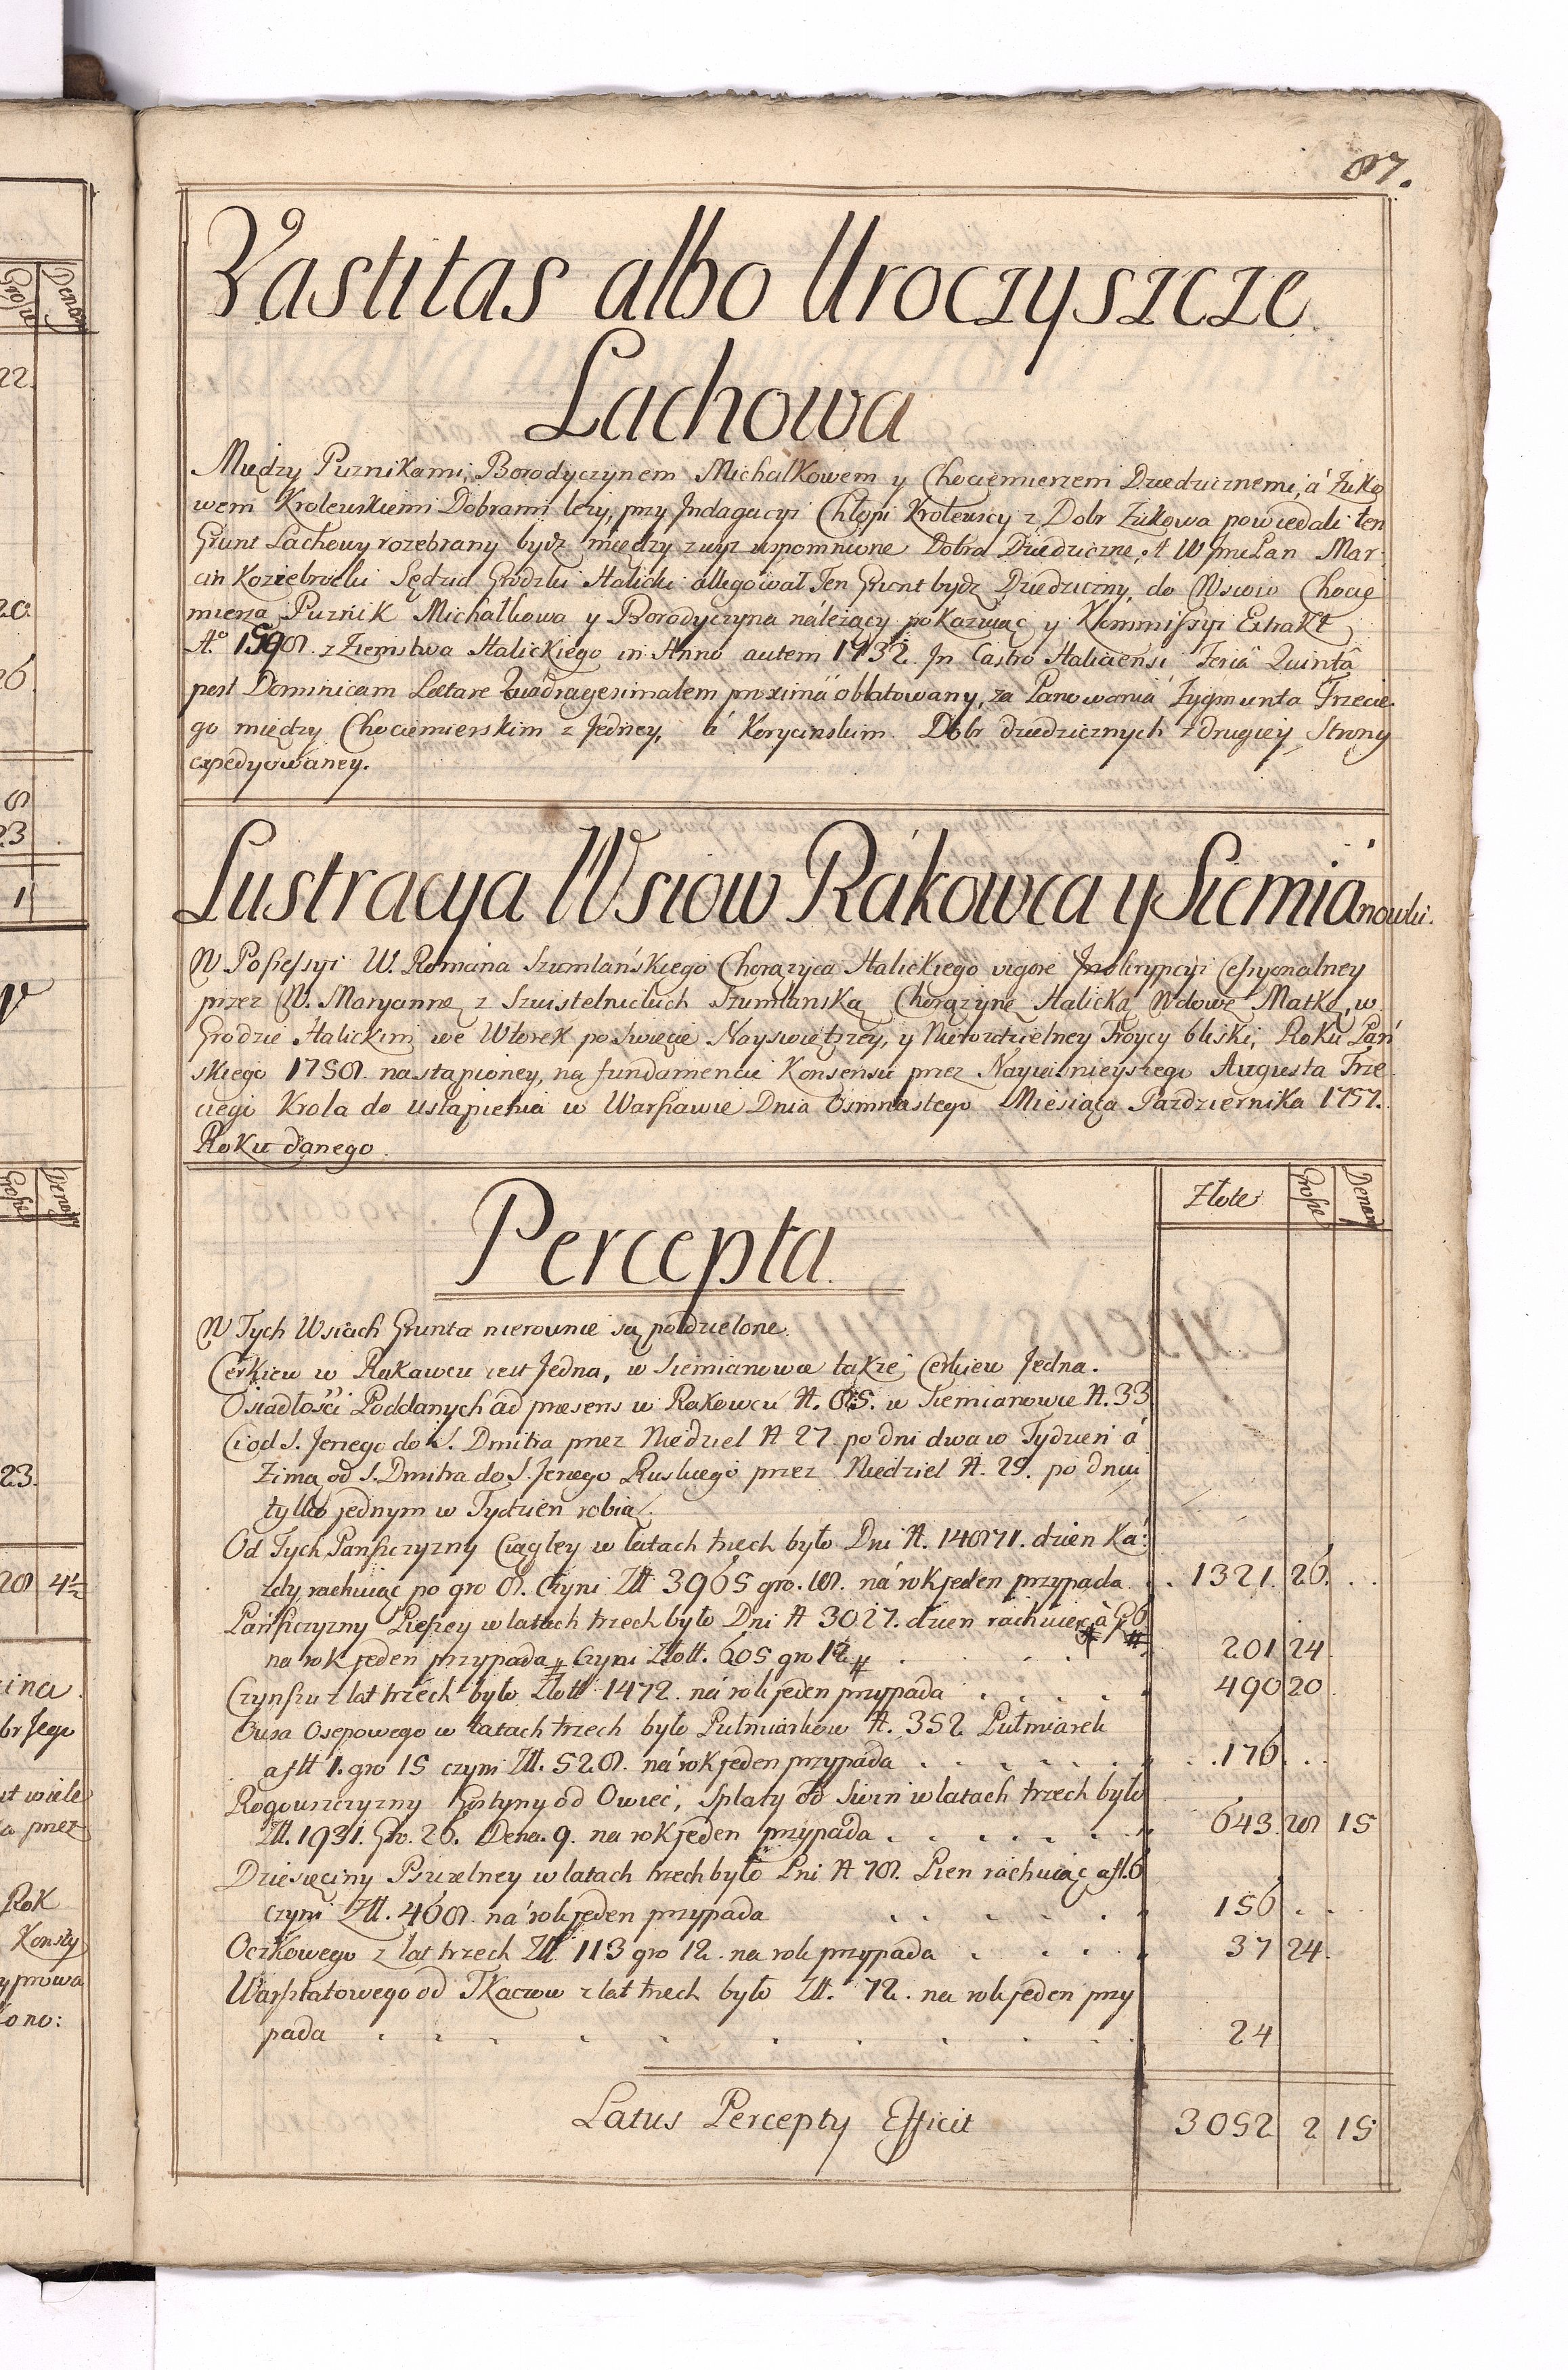 87.
Vastitas albo Uroczyszcze
Lachowa
Między Puznikami, Borodyczynem Michalkowem y Chocimierzem Dziedzicznemi, á Żuko
wem Krolewskiemi Dobrami leży, przy Indagacyi Chłopi Krolewscy z Dobr Żukowa powiedali ten
Grunt Lachowy rozebrany bydz między zwyz wspomnione Dobra Dziedziczne, A WImć Pan Mar-
cin Koziebrodzki Sędzia Grodzki Halicki allegował Ten Grunt bydz Dziedziczny, do Wsiow Chocie
mierza Puźnik Michałkowa y Borodyczyna należący pokazuiąc y Kommissyi Extrakt
Aº 1598. z Ziemstwa Halickiego in Anno autem 1732. In Castro Haliciensi Feriâ Quintâ
post Dominicam Laetare Quadragesimalem proximâ oblatowany, za Panowania Zygmunta Trzecie-
go między Chocimierskim z Jedney, á Korycinskim Dobr dziedzicznych z drugiey Strony
expedyowaney.
Lustracya Wsiow Rákowca y Siemianowki.
W Possessyi W. Romana Szumlańskiego Chorążyca Halickiego vigore Inskrypcyi Cessyonalney
przez W. Maryannę z Szwistelnickich Szumlanską Chorążynę Halicką Wdowę Matkę, w
Grodzie Halickim we Wtorek po Swięcie Nayswiętszey, y Nierozdzielney Troycy bliski, Roku Pań
skiego 1758. nastąpioney, na fundamencie Konsensu przez Nayiasnieyszego Augusta Trze
ciego Krola do ustąpienia w Warszawie Dnia Osmnastego Miesiąca Pazdziernika 1757.
Roku danego.
Percepta.
Złote Grosze Denary
W Tych Wsiach Grunta nierownie są podzielone.
Cerkiew w Rakowcu iest Jedna, w Siemianowce także Cerkiew Jedna.
Osiadłości Poddanych ad praesens w Rakowcu N. 85. w Siemianowce N. 33
Ci od S. Jerzego do S. Dmitra przez Niedziel N 27. po dni dwa w Tydzień á
Zimą od S. Dmitra do S. Jerzego Ruskiego przez Niedziel N. 25. po dniu
tylko jednym w Tydzien robią.
Od Tych Pańszczyzny Ciągley w latach trzech było Dni N. 14871. dzien Ka:
zdy rachuiąc po gro 8. czyni Złł 3965 gro. 18. ná rok jeden przypada . . 1321. 26. . .
Pańszczyzny Pieszey w latach trzech było Dni N 3027. dzien rachuiąc à G. 6
na rok jeden przypada # Czyni Złott. 605 gro 12 # . . . . 201 24
Czynszu z lat trzech było Złott 1472. ná rok jeden przypada . . . . 490 20
Owsa Osepowego w łatach trzech było Pułmiarkow N. 352 Pułmiarek
a fltt 1. gro 15 czyni Złł. 528. ná rok jeden przypada . . . . . . . 176. . .
Rogowszczyzny Gostyny od Owiec, Spłaty od Swin w latach trzech było
Złł. 1931. Gro. 26. Dena. 9. na rok jeden przypada . . . . . . . 643. 28 15
Dziesięciny Pszczelney w latach trzech było Pni N 78. Pien rachuiąc a fl. 6
czyni Złł. 468. ná rok jeden przypada . . . . . . 156 . .
Oczkowego z lat trzech Złł 113 gro 12. na rok przypada . . . . . 37 24.
Warsztatowego od Tkaczow z lat trzech było Złł. 72. na rok jeden przy
pada . . . . . . . . . . . . 24
Latus Percepty Efficit 3052 2 15